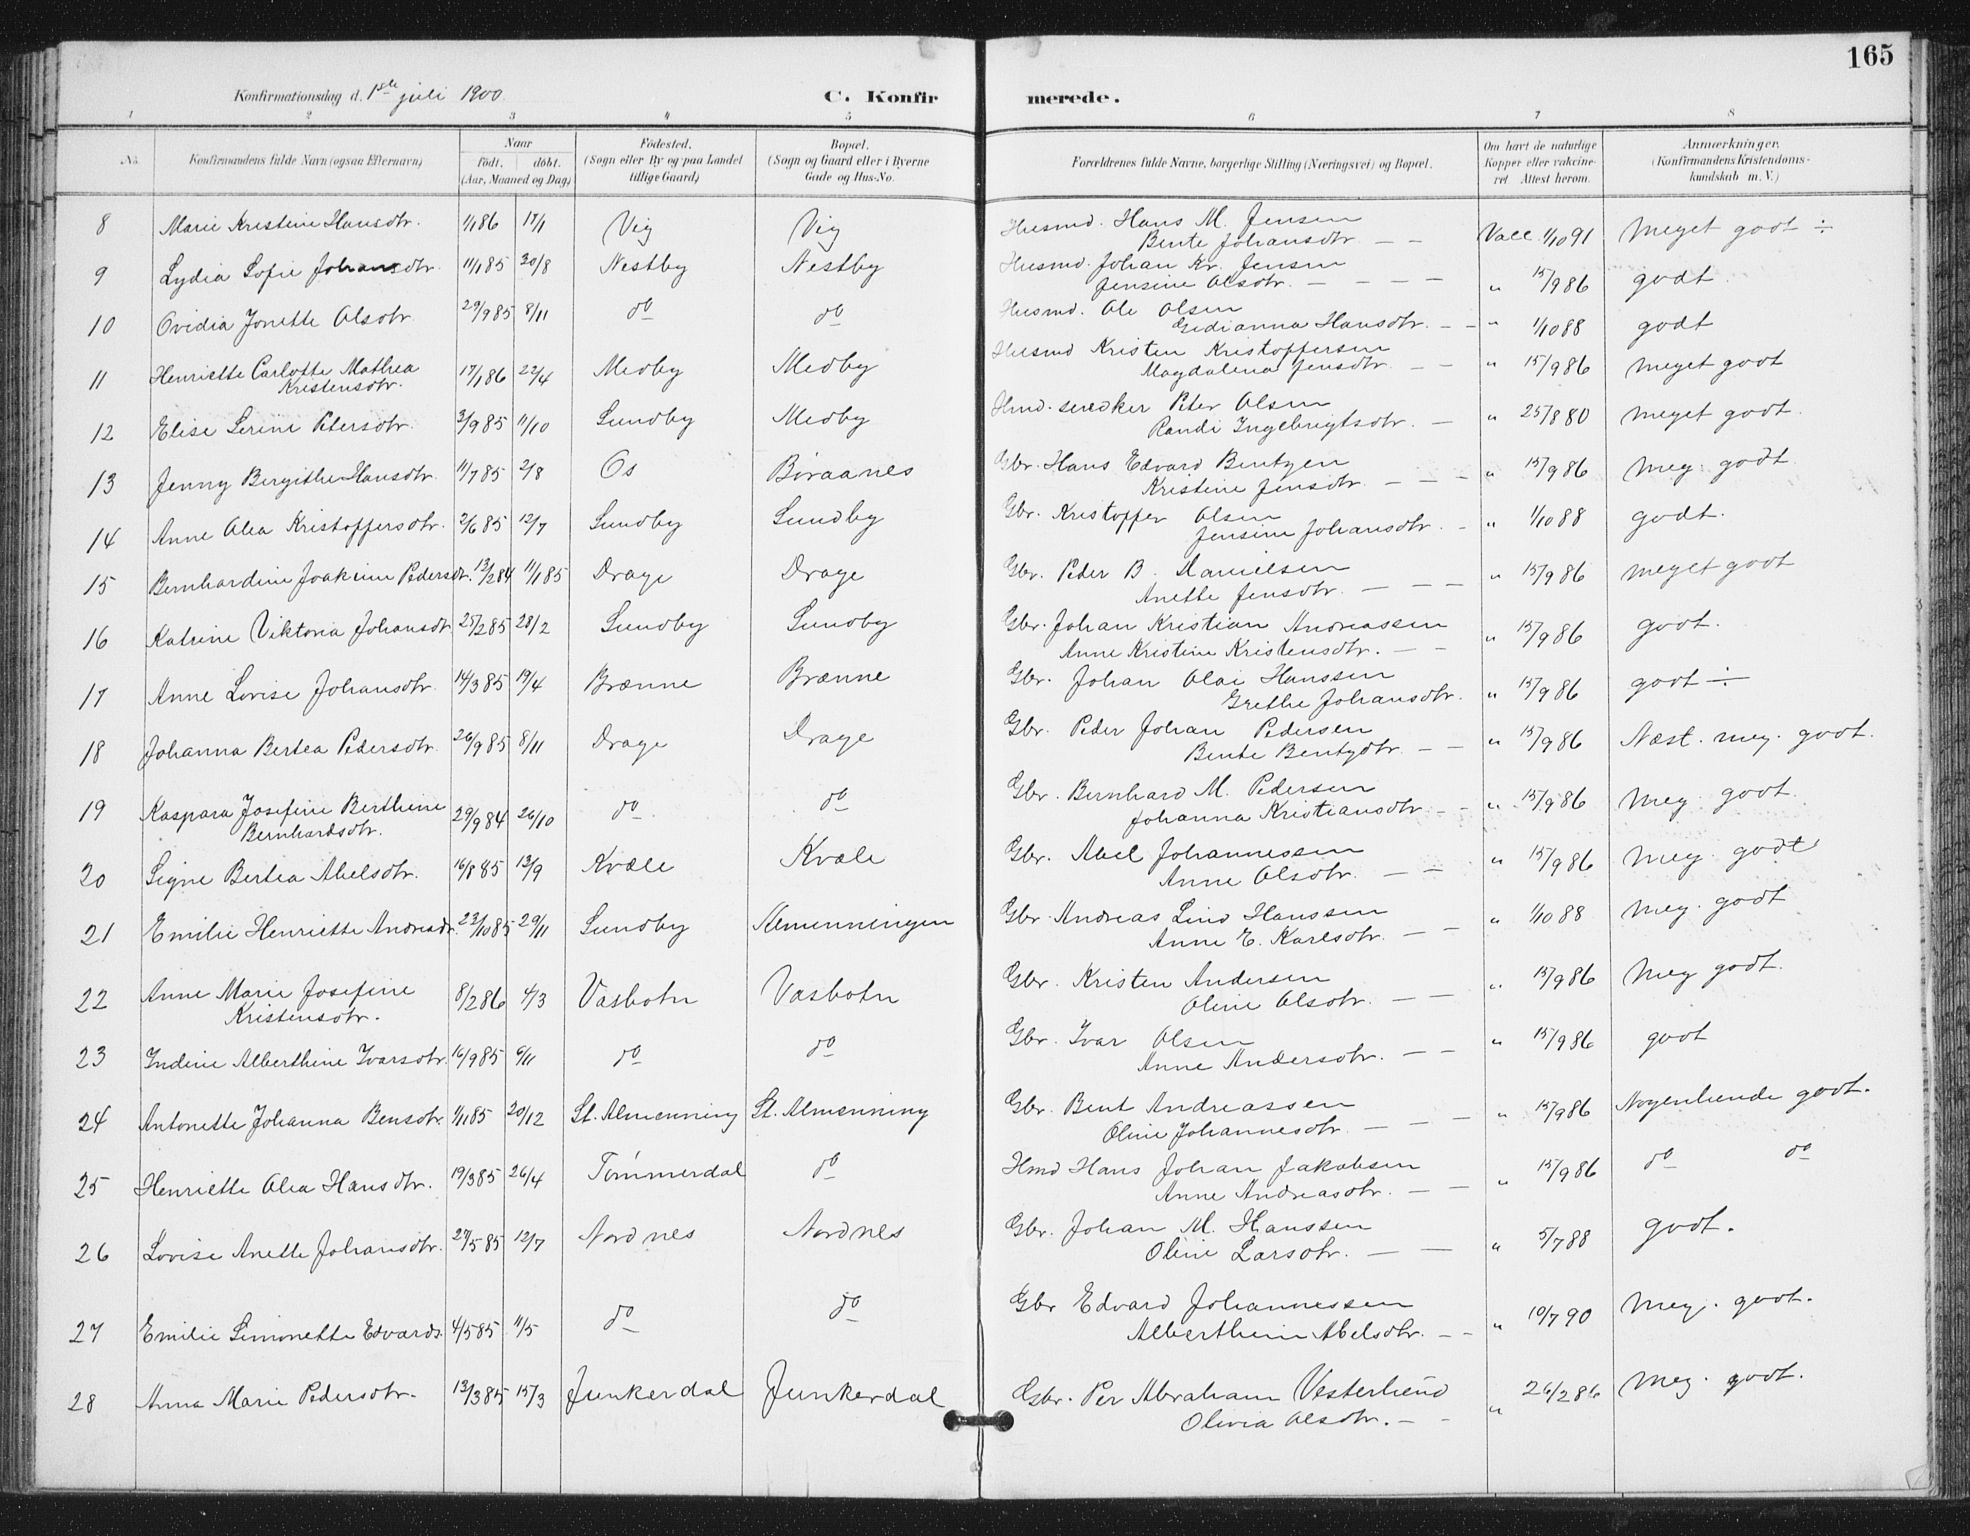 165
Konfirmationsdag d. 1ste juli 1900. C. Konfirmerede.
1 2 3 4 5 6 7 8
No. Konfirmandens fulde Navn (ogsaa Efternavn) Naar født. døbt. (Aar, Maaned og Dag) Fødested. (Sogn eller By og paa Landet tillige Gaard) Bopæl. (Sogn og Gaard eller i Byerne Gade og Hus-No. Forældrenes fulde Navne, borgerlige Stilling (Næringsvei) og Bopæl. Om havt de naturlige Kopper eller vakcineret. Attest herom. Anmærkninger. (Konfirmandens Kristendomskundskab m. V.)
8 Marie Kristine Hansdtr. 1/1 86 17/1 Vig Vig Husmd. Hans M. Jensen Vacc. 1/10 91 Meget godt ÷
Bente Johansdtr. — —
9 Lydia Sofie Johansdtr. 11/1 85 30/8 Nestby Nestby Husmd. Johan Kr. Jensen " 15/9 86 godt.
Jensine Olsdtr. — — — —
10 Ovidia Jonette Olsdtr. 29/9 85 8/11 do do Husmd. Ole Olsen " 1/10 88 godt
Gidianna Hansdtr. — —
11 Henriette Carlotte Mathea 17/1 86 22/4 Medby Medby Husmd Kristen Kristoffersen " 15/9 86 meget godt
Kristensdtr. Magdalena Jensdtr. — —
12 Elise Serine Petersdtr. 3/9 85 11/10 Sundby Medby Hmd. Peter Olsen " 25/8 80 meget godt.
Randi Ingebrigtsdtr. —
13 Jenny Bergithe Hansdtr. 11/7 85 2/8 Os Børaanes Gbr. Hans Edvard Bentzen " 15/9 86 meg. godt
Kristine Jensdtr. — — —
14 Anne Olea Kristoffersdtr. 2/6 85 12/7 Sundby Sundby Gbr. Kristoffer Olsen " 1/10 88 godt.
Jensine Johansdtr. —
15 Bernhardine Joakime Pedersdt. 13/2 84 11/1 85 Drage Drage Gbr. Peder B. Danielsen " 15/9 86 meget godt
Anette Jensdtr. — — —
16 Katrine Viktoria Johansdtr 25/2 85 28/2 Sundby Sundby Gbr. Johan Kristian Andreassen " 15/9 86 godt.
Anne Kristine Kristensdtr. — —
17 Anne Lovise Johansdtr. 14/3 85 19/4 Brænne Brænne Gbr. Johan Olai Hanssen " 15/9 86 godt ÷
Grethe Johansdtr.
18 Johanna Bertea Pedersdtr. 26/9 85 8/11 Drage Drage Gbr. Peder Johan Pedersen " 15/9 86 Næst. meg. godt.
Bente Bentzdtr. — —
19 Kaspara Josefine Berthine 29/9 84 26/10 do do Gbr. Bernhard M. Pedersen " 15/9 86 Meg. godt.
Bernhardsdtr. Johanna Kristiansdtr. — —
20 Signe Bertea Abelsdtr. 16/8 85 13/9 Kvæle Kvæle Gbr. Abel Johannessen " 15/9 86 Meg. godt
Anne Olsdtr. — —
21 Emilie Henriette Andreadr. 23/10 85 29/11 Sundby Almenningen Gbr. Andreas Lind Hanssen " 1/10 88 Meg. godt
Anne E. Karlsdtr. — —
22 Anne Marie Josefine 8/2 86 4/3 Vasbotn Vasbotn Gbr. Kristen Andersen " 15/9 86 Meg godt.
Kristensdtr. Oline Olsdtr. — —
23 Indine Alberthine Ivarsdtr. 16/9 85 6/11 do do Gbr. Ivar Olsen " 15/9 86 godt
Anne Andersdtr. — —
24 Antonette Johanna Bensdtr. 1/1 85 20/12 St. Almenning St. Almenning Gbr. Bent Andreassen " 15/9 86 Nogenlunde godt.
Oline Johannesdtr. — — —
25 Henriette Olea Hansdtr. 19/3 85 26/4 Tømmerdal do Hmd Hans Johan Jakobsen " 15/9 86 do do
Anne Andreasdtr. — —
26 Lovise Anette Johansdtr. 27/5 85 12/7 Nordnes Nordnes Gbr. Johan M. Hanssen " 5/7 88 godt.
Oline Larsdtr. — —
27 Emilie Simonette Edvards. 4/5 85 11/5 do do Gbr Edvard Johannessen " 10/7 90 Meg. godt.
Alberthine Abelsdtr. — —
28 Anna Marie Pedersdtr. 13/3 85 15/3 Junkerdal Junkerdal Gbr. Per Abraham Vesterlund " 26/2 86 Meg. godt.
Olivia Olsdtr. — —